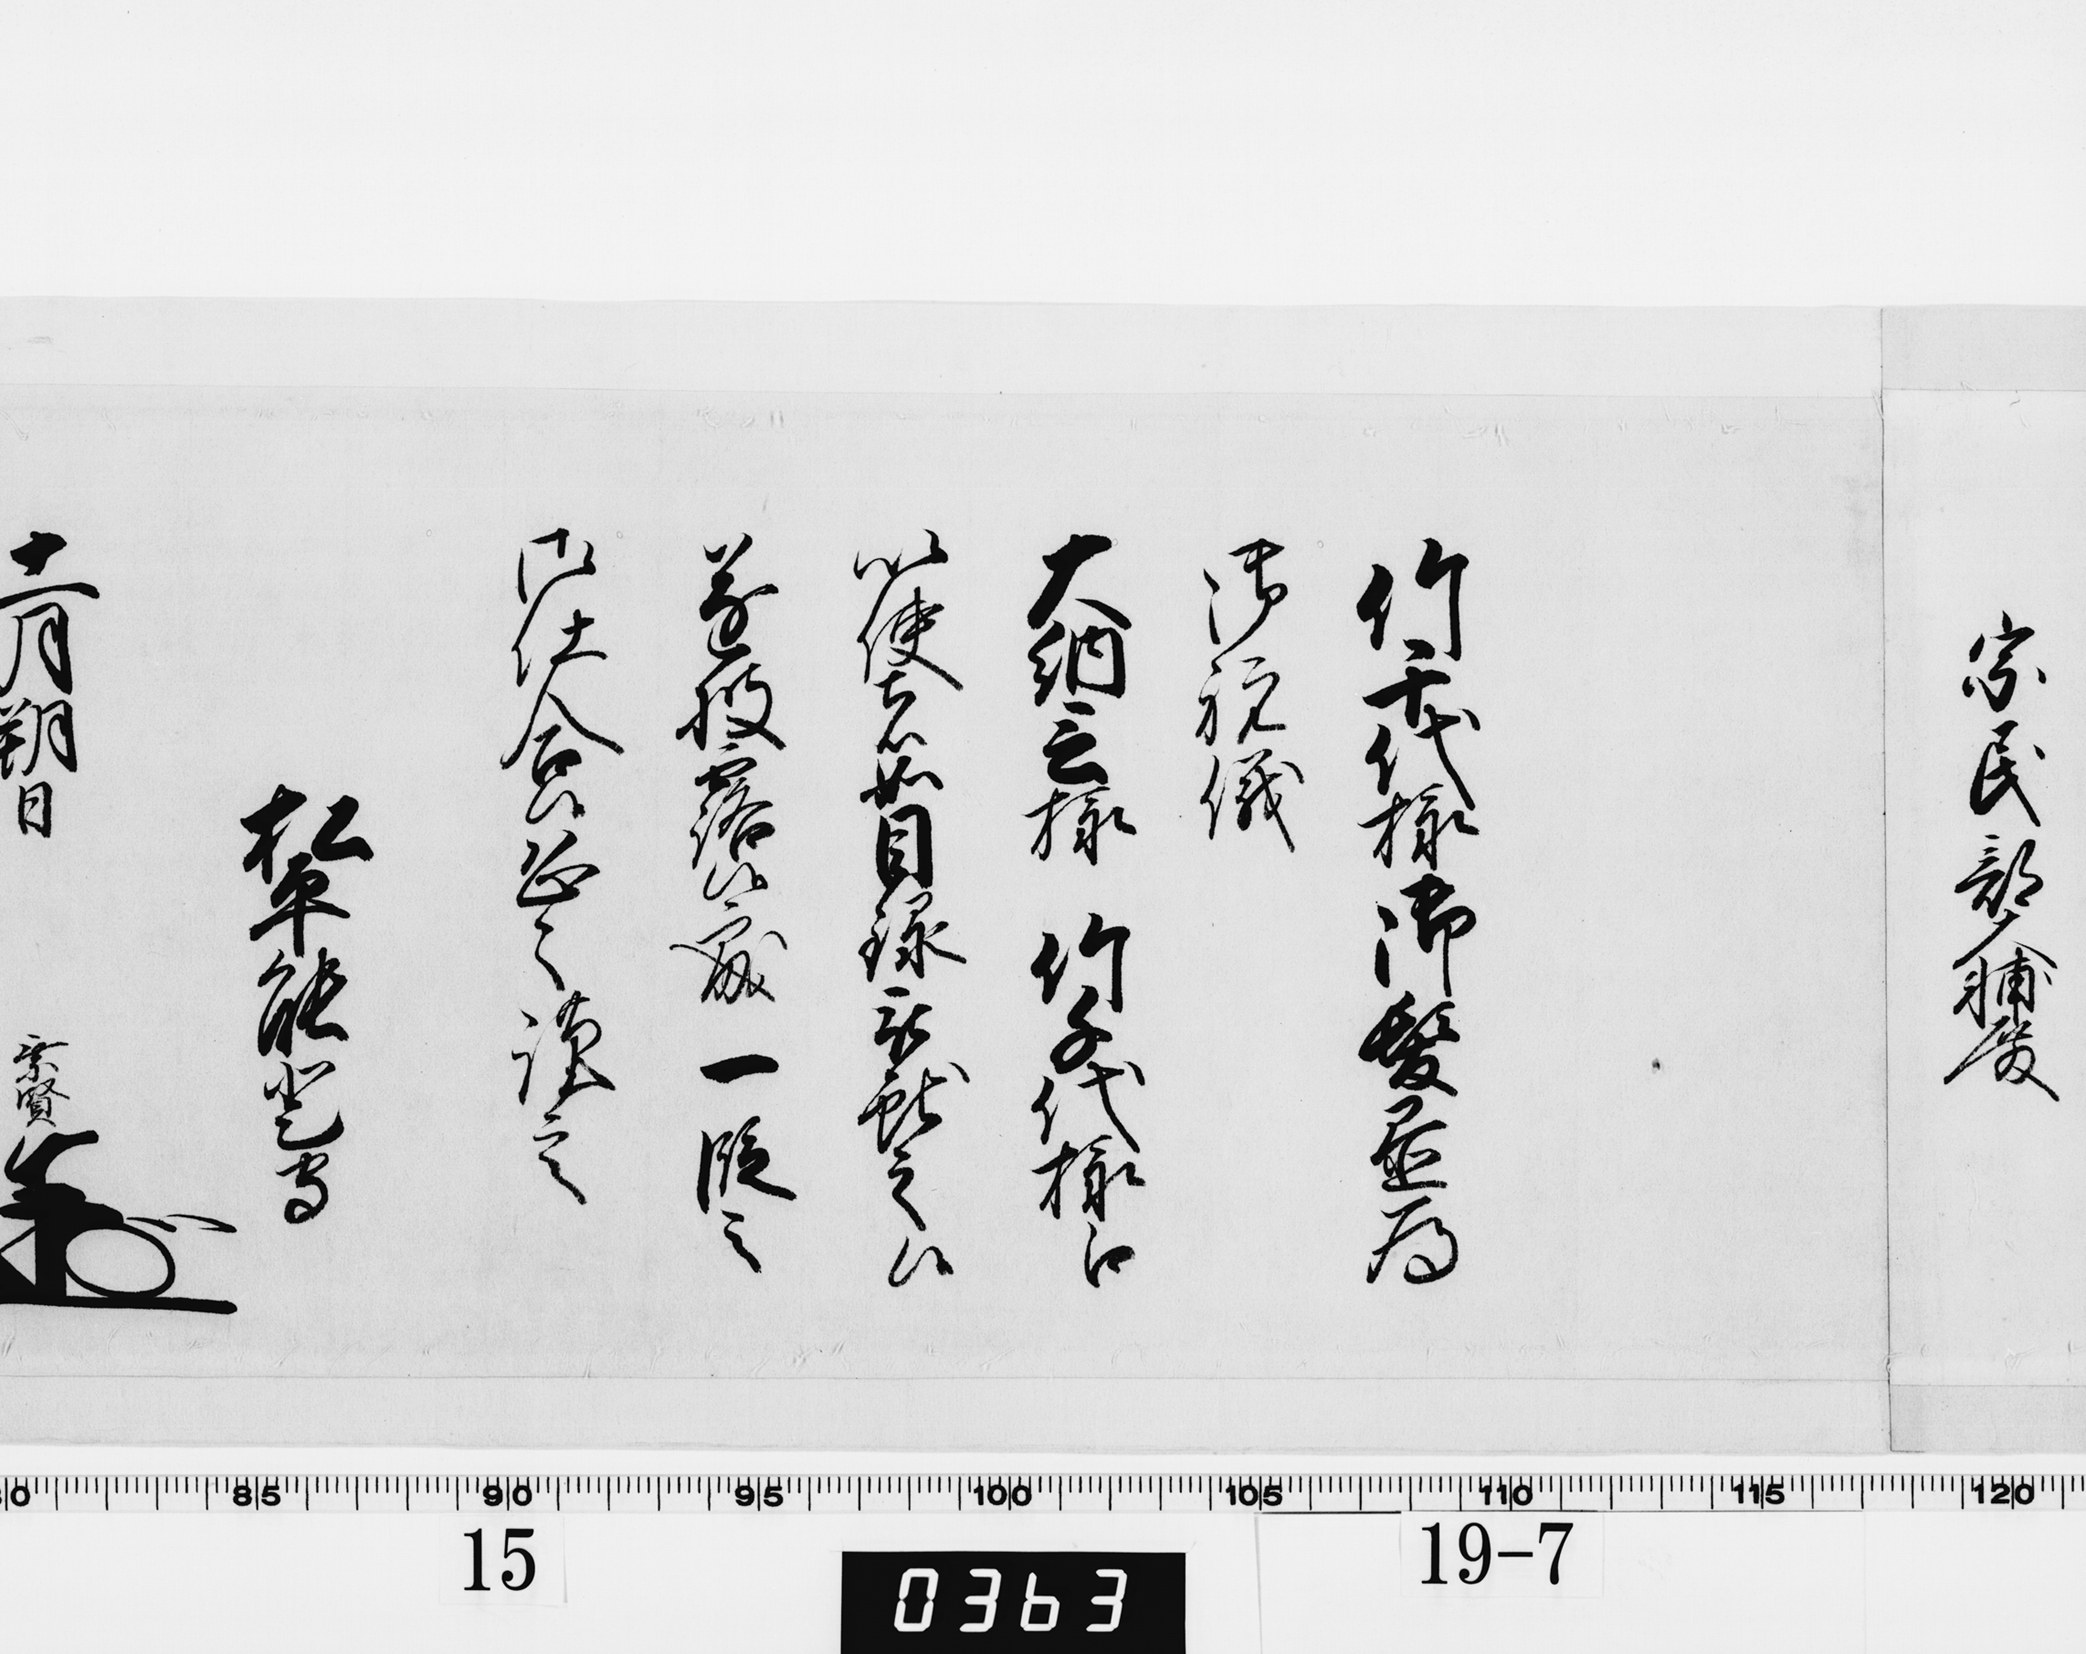 宗民部少輔殿
竹千代様御髪置為
御祝儀
大納言様　竹千代様江
以使者如目録献之候
遂披露候處一段之
御仕合候恐々謹言
松平能登守
十二月朔日
乗賢
80 85 90 95 100 105 110 115 120
15
19-7
0363